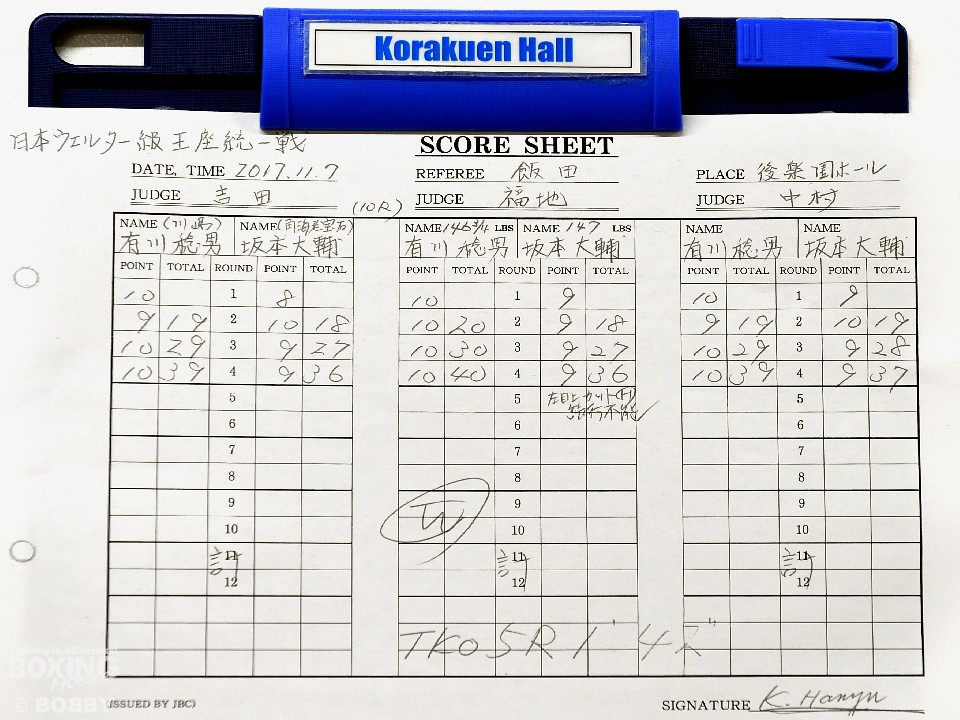 Korakuen Hall
日本ウェルター級王座統一戦
SCORE SHEET
DATE, TIME 2017.11.7 REFEREE 飯田 PLACE 後楽園ホール
JUDGE 吉田 (10R) JUDGE 福地 JUDGE 中村
NAME (川崎) NAME NAME 146 3/4 LBS NAME 147 LBS NAME NAME
有川稔男 坂本大輔 有川稔男 坂本大輔 有川稔男 坂本大輔
POINT TOTAL ROUND POINT TOTAL POINT TOTAL ROUND POINT TOTAL POINT TOTAL ROUND POINT TOTAL
10 1 8 10 1 9 10 1 9
9 19 2 10 18 10 20 2 9 18 9 19 2 10 19
10 29 3 9 27 10 30 3 9 27 10 29 3 9 28
10 39 4 9 36 10 40 4 9 36 10 39 4 9 37
5 5 左目上カット 5
続行不能
6 6 6
7 7 7
8 8 8
9 9 9
W
10 10 10
11 11 11
12 12 12
TKO 5R 1'42"
BOXING
© BOBBY
(ISSUED BY JBC)
SIGNATURE K. Hanyu